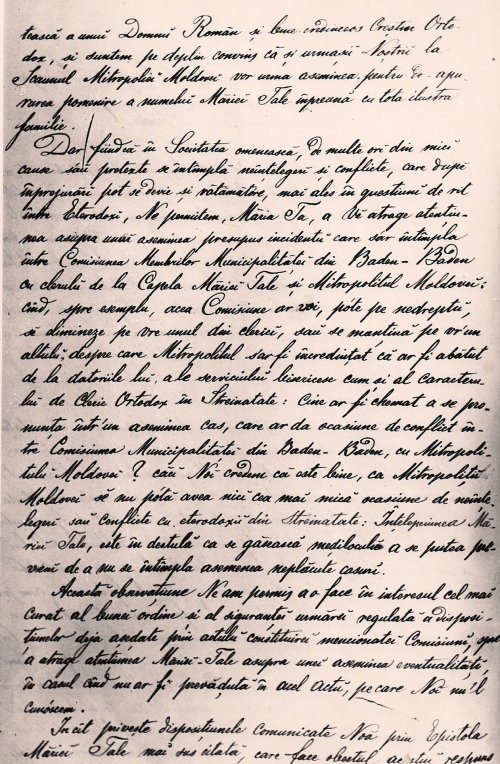 tească a unui Domnŭ Român și bine-credincios Creștin Orto-
dox, și suntem pe deplin convinș că și urmașii Noștrii la
Scaunul Mitropoliei Moldovei vor urma asemenea pentru de-apu-
rerea pomenire a numelui Măriei Tale împreună cu tóta ilustra
familie.
Dar fiindcă în Societatea omenească, de multe ori din mici
cause sau pretexte se întîmplă neînțelegeri și conflicte, care după
înprejurări pot se devie și vătămătóre, mai ales în questiuni de rit
între Eterodoxi, Ne permitem, Măria Ta, a Vĕ atrage atențiu-
nea asupra unui asemenea presupus incidentŭ care s'ar întîmpla
între Comisiunea Membrilor Municipalităței din Baden-Baden
cu clerulŭ de la Capela Măriei Tale și Mitropolitul Moldovei:
cînd, spre esemplu, acea Comisiune ar voi, póte pe nedreptŭ,
să elimineze pe vre unul din clerici, sau se mănțină pe vr'un
altulŭ, despre care Mitropolitul s'ar fi încredințat că ar fi abătut
de la datoriile lui, ale serviciului bisericesc cum și al caracteru-
lui de Cleric Ortodox în Streinatate: Cine ar fi chemat a se pro-
nunța într'un asemenea cas, care ar da ocasiune de conflict în-
tre Comisiunea Municipalităței din Baden-Baden, cu Mitropoli-
tulŭ Moldovei? căci Noi credem că este bine, ca Mitropolitŭ
Moldovei sĕ nu pótă avea nici cea mai mică ocasiune de neînțe-
legeri sau conflicte cu eterodoxii din Streinatate: Înțelepciunea Mă-
riei Tale, este în destulă ca se găsască mediloculŭ a se putea pre-
veni de a nu se întîmpla asemenea neplăcute casuri.
Aceasta observațiune Ne am permis a o face în interesul cel mai
curat al bunei ordine și al siguranței urmărei regulată a disposi-
țiunelor deja aședate prin actulŭ constituirei menționatei Comisiuni, spre
a atrage atențiunea Măriei-Tale asupra unei asemenea eventualități
în casul cînd nu ar fi prevăḑută în acel Actŭ, pe care Noi nu'l
cunóscem.
In cît privește disposițiunele comunicate Noă prin Epistola
Măriei Tale mai sus citată, care face obectul acestui respuns